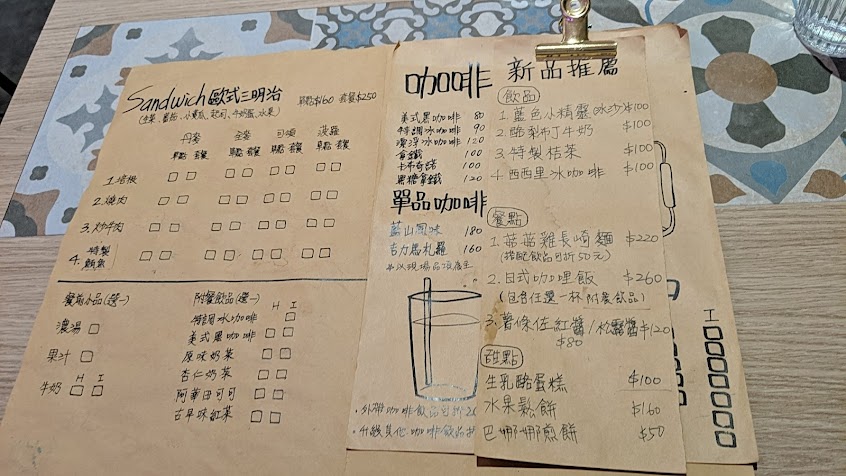 Sandwich 歐式三明治 單點$160 套餐$250
(生菜、蕃茄、小黃瓜、起司、牛奶蛋、水果)
丹麥 全麥 可頌 菠蘿
單點 套餐 單點 套餐 單點 套餐 單點 套餐
1.培根
2.燒肉
3.炒牛肉
4.特製鮪魚
餐前小品(選一)
濃湯
果汁
H I
牛奶
附餐飲品(選一)
H I
特調冰咖啡
美式黑咖啡
原味奶茶
杏仁奶茶
阿華田可可
古早味紅茶
咖啡
美式黑咖啡 80
特調冰咖啡 90
漂浮冰咖啡 120
拿鐵 100
卡布奇諾 100
黑糖拿鐵 120
單品咖啡
藍山風味 180
吉力馬札羅 160
新品推薦
飲品
1.藍色小精靈(冰沙)$100
2.雞布丁牛奶 $100
3.特製桔茶 $100
4.西西里冰咖啡 $100
餐點
1.菇菇雞長崎麵 $220
(搭配飲品可折50元)
2.日式咖哩飯 $260
(包含任選一杯附餐飲品)
3.薯條佐紅醬/松露醬$120
$80
甜點
生乳酪蛋糕 $100
水果鬆餅 $160
巴娜娜煎餅 $50
I